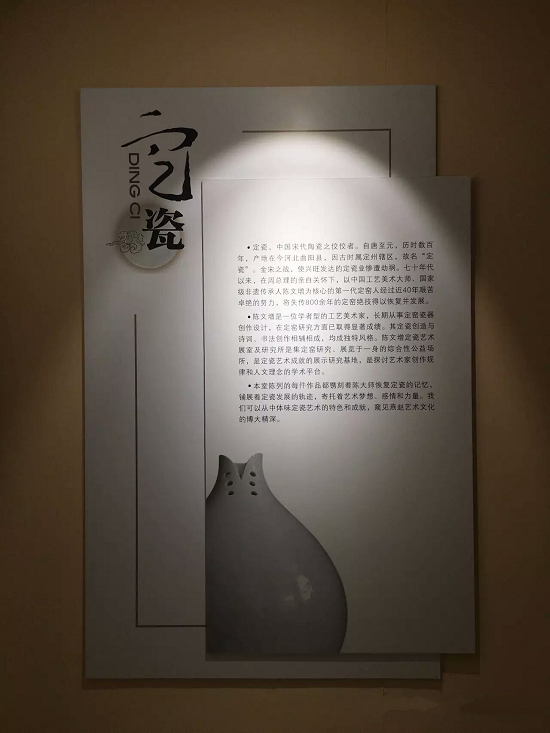 定瓷
DING CI
• 定瓷，中国宋代陶瓷之佼佼者。自唐至元，历时数百
年，产地在今河北曲阳县，因古时属定州辖区，故名“定
瓷”。金宋之战，使兴旺发达的定瓷业惨遭劫祸。七十年代
以来，在周总理的亲自关怀下，以中国工艺美术大师、国家
级非遗传承人陈文增为核心的第一代定窑人经过近40年艰苦
卓绝的努力，将失传800余年的定窑绝技得以恢复并发展。
• 陈文增是一位学者型的工艺美术家，长期从事定窑瓷器
创作设计，在定窑研究方面已取得显著成绩。其定瓷创造与
诗词、书法创作相辅相成，均成独特风格。陈文增定瓷艺术
展室及研究所是集定窑研究、展览于一身的综合性公益场
所，是定瓷艺术成就的展示研究基地，是探讨艺术家创作规
律和人文理念的学术平台。
• 本室陈列的每件作品都镌刻着陈大师恢复定瓷的记忆，
铺展着定瓷发展的轨迹，寄托着艺术梦想、感情和力量。我
们可以从中体味定瓷艺术的特色和成就，窥见燕赵艺术文化
的博大精深。